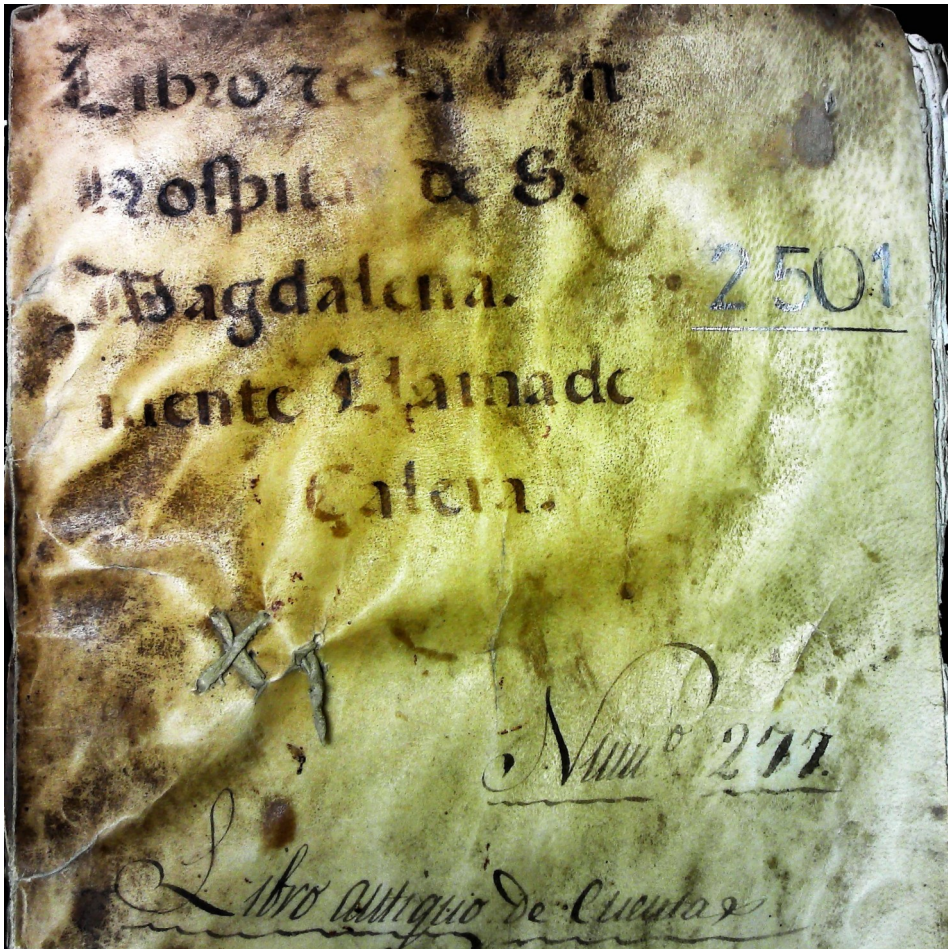 Libro de la
Hospital de S.
Magdalena.
2501
mente Llamade
Calera.
Num° 277.
Libro antiguo de Cuentas